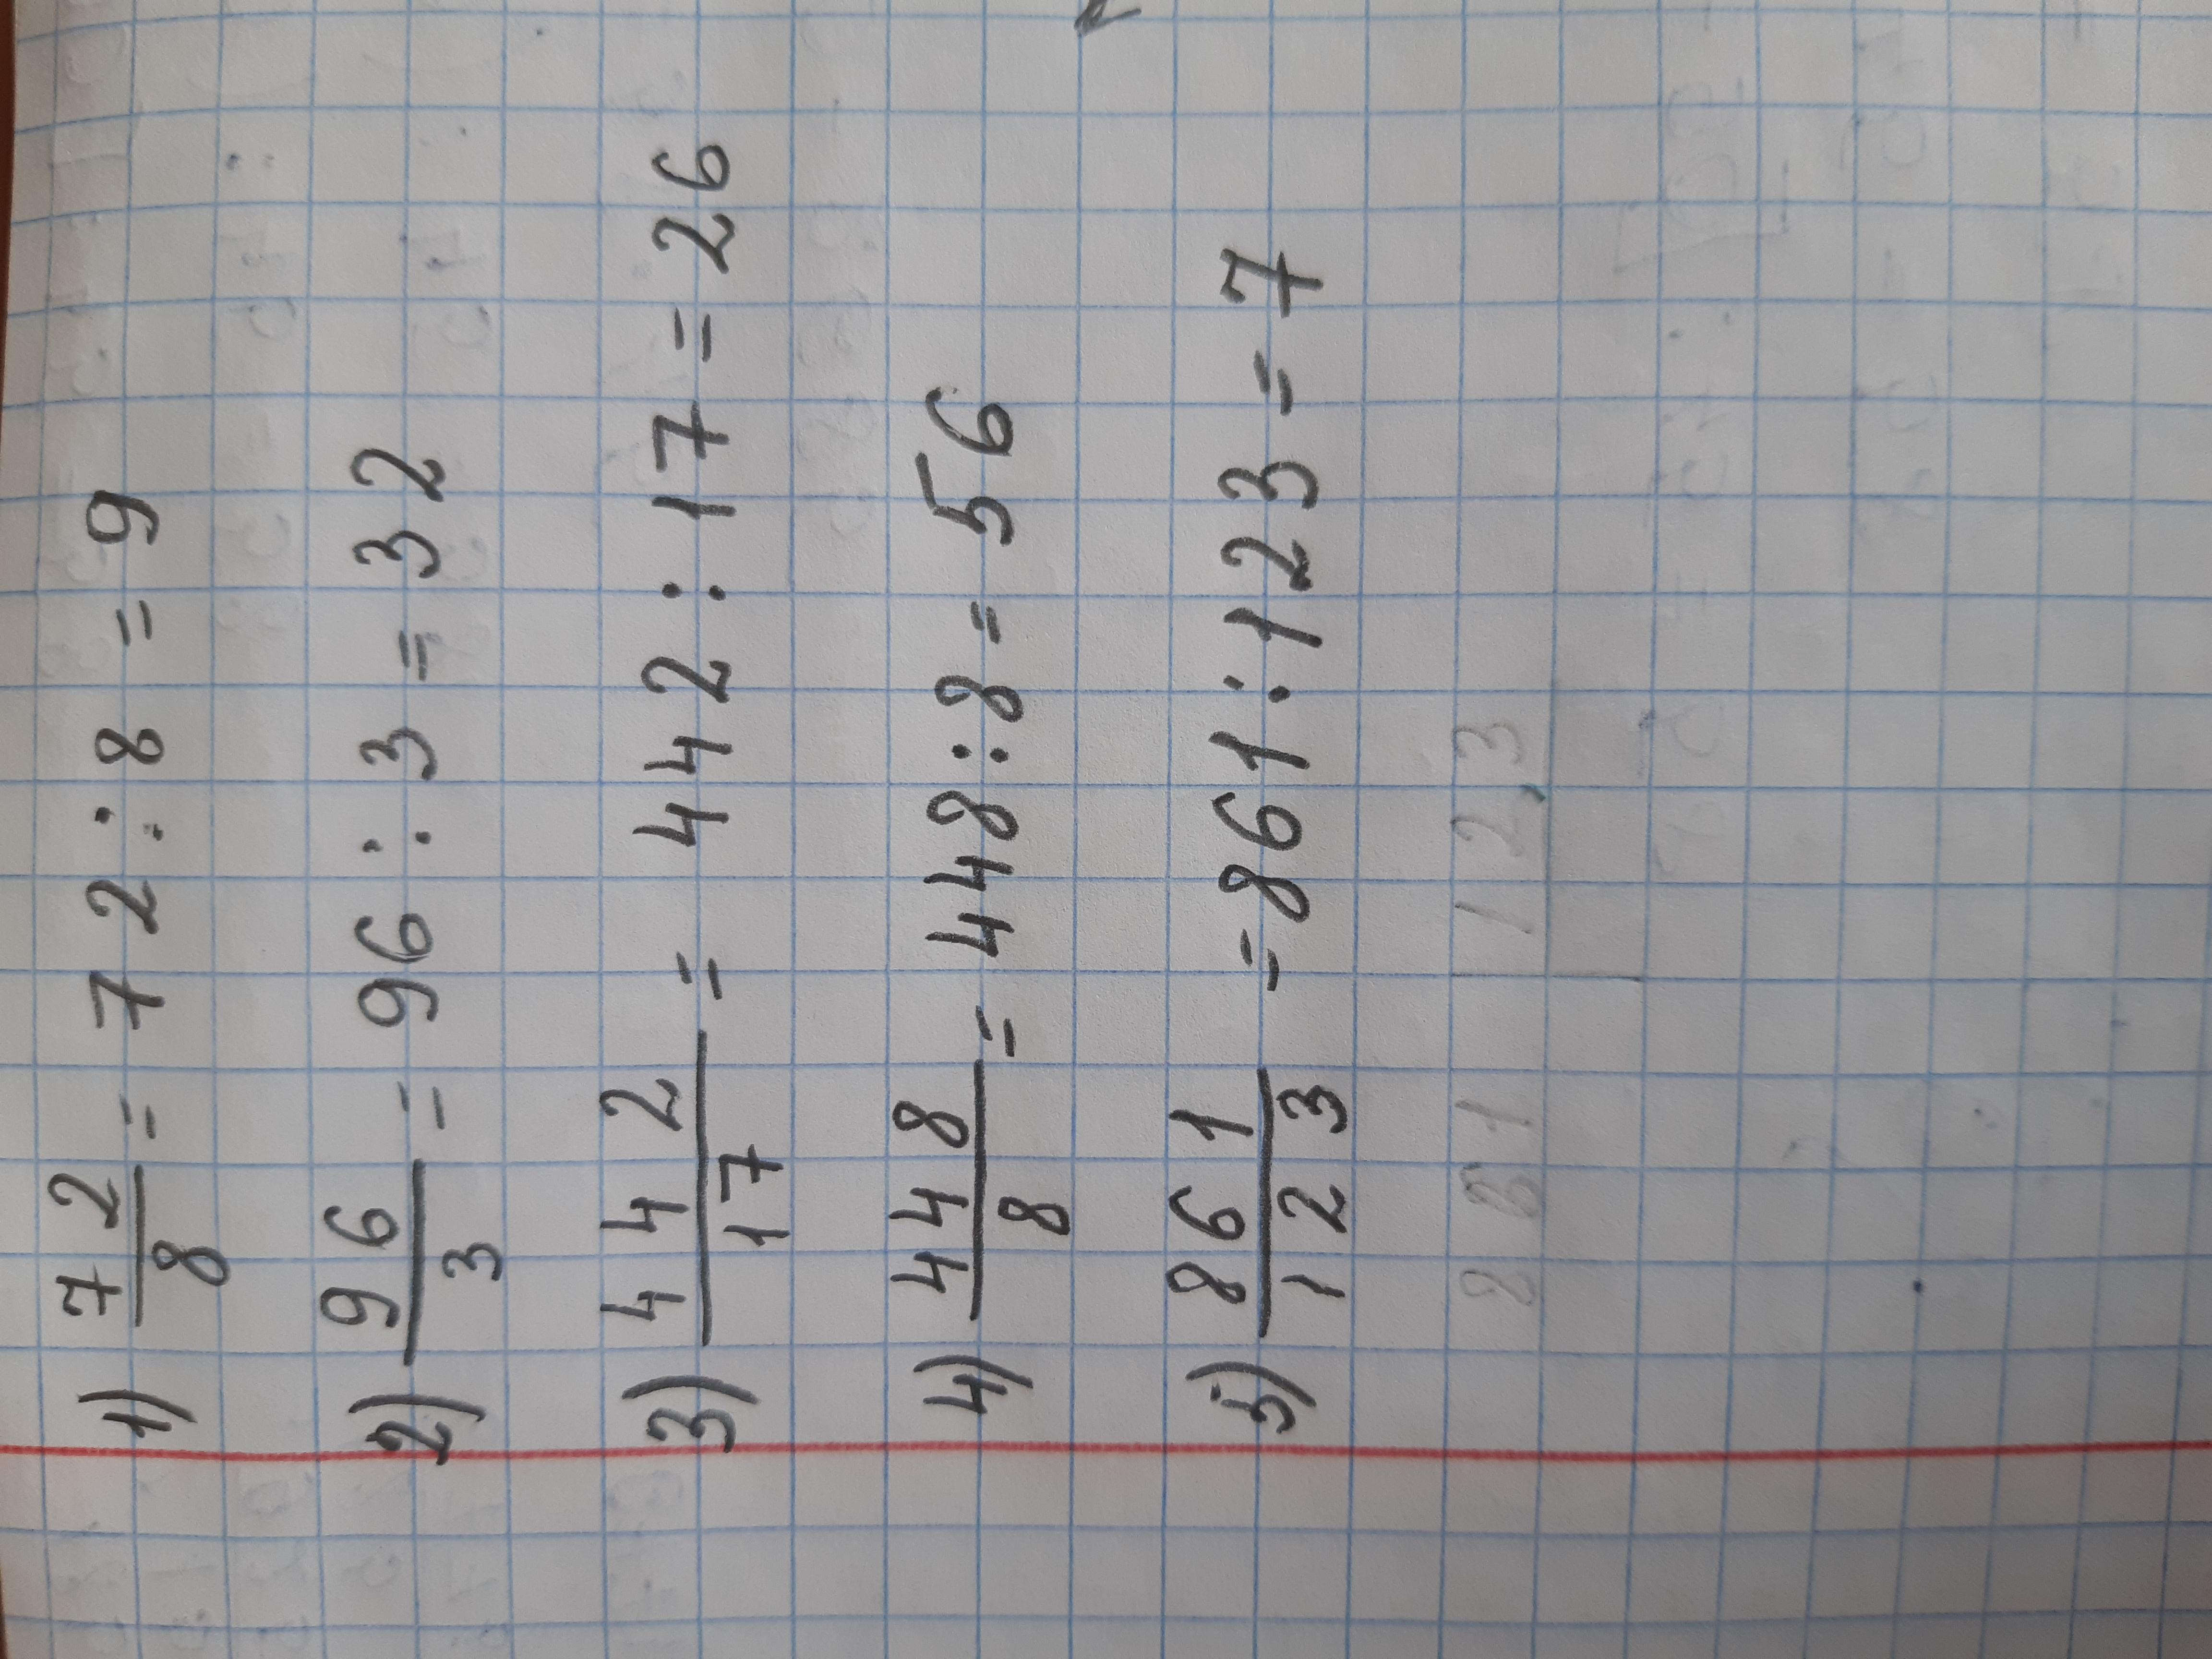 1) 72/8 = 72 : 8 = 9
2) 96/3 = 96 : 3 = 32
3) 442/17 = 442 : 17 = 26
4) 448/8 = 448 : 8 = 56
5) 861/123 = 861 : 123 = 7